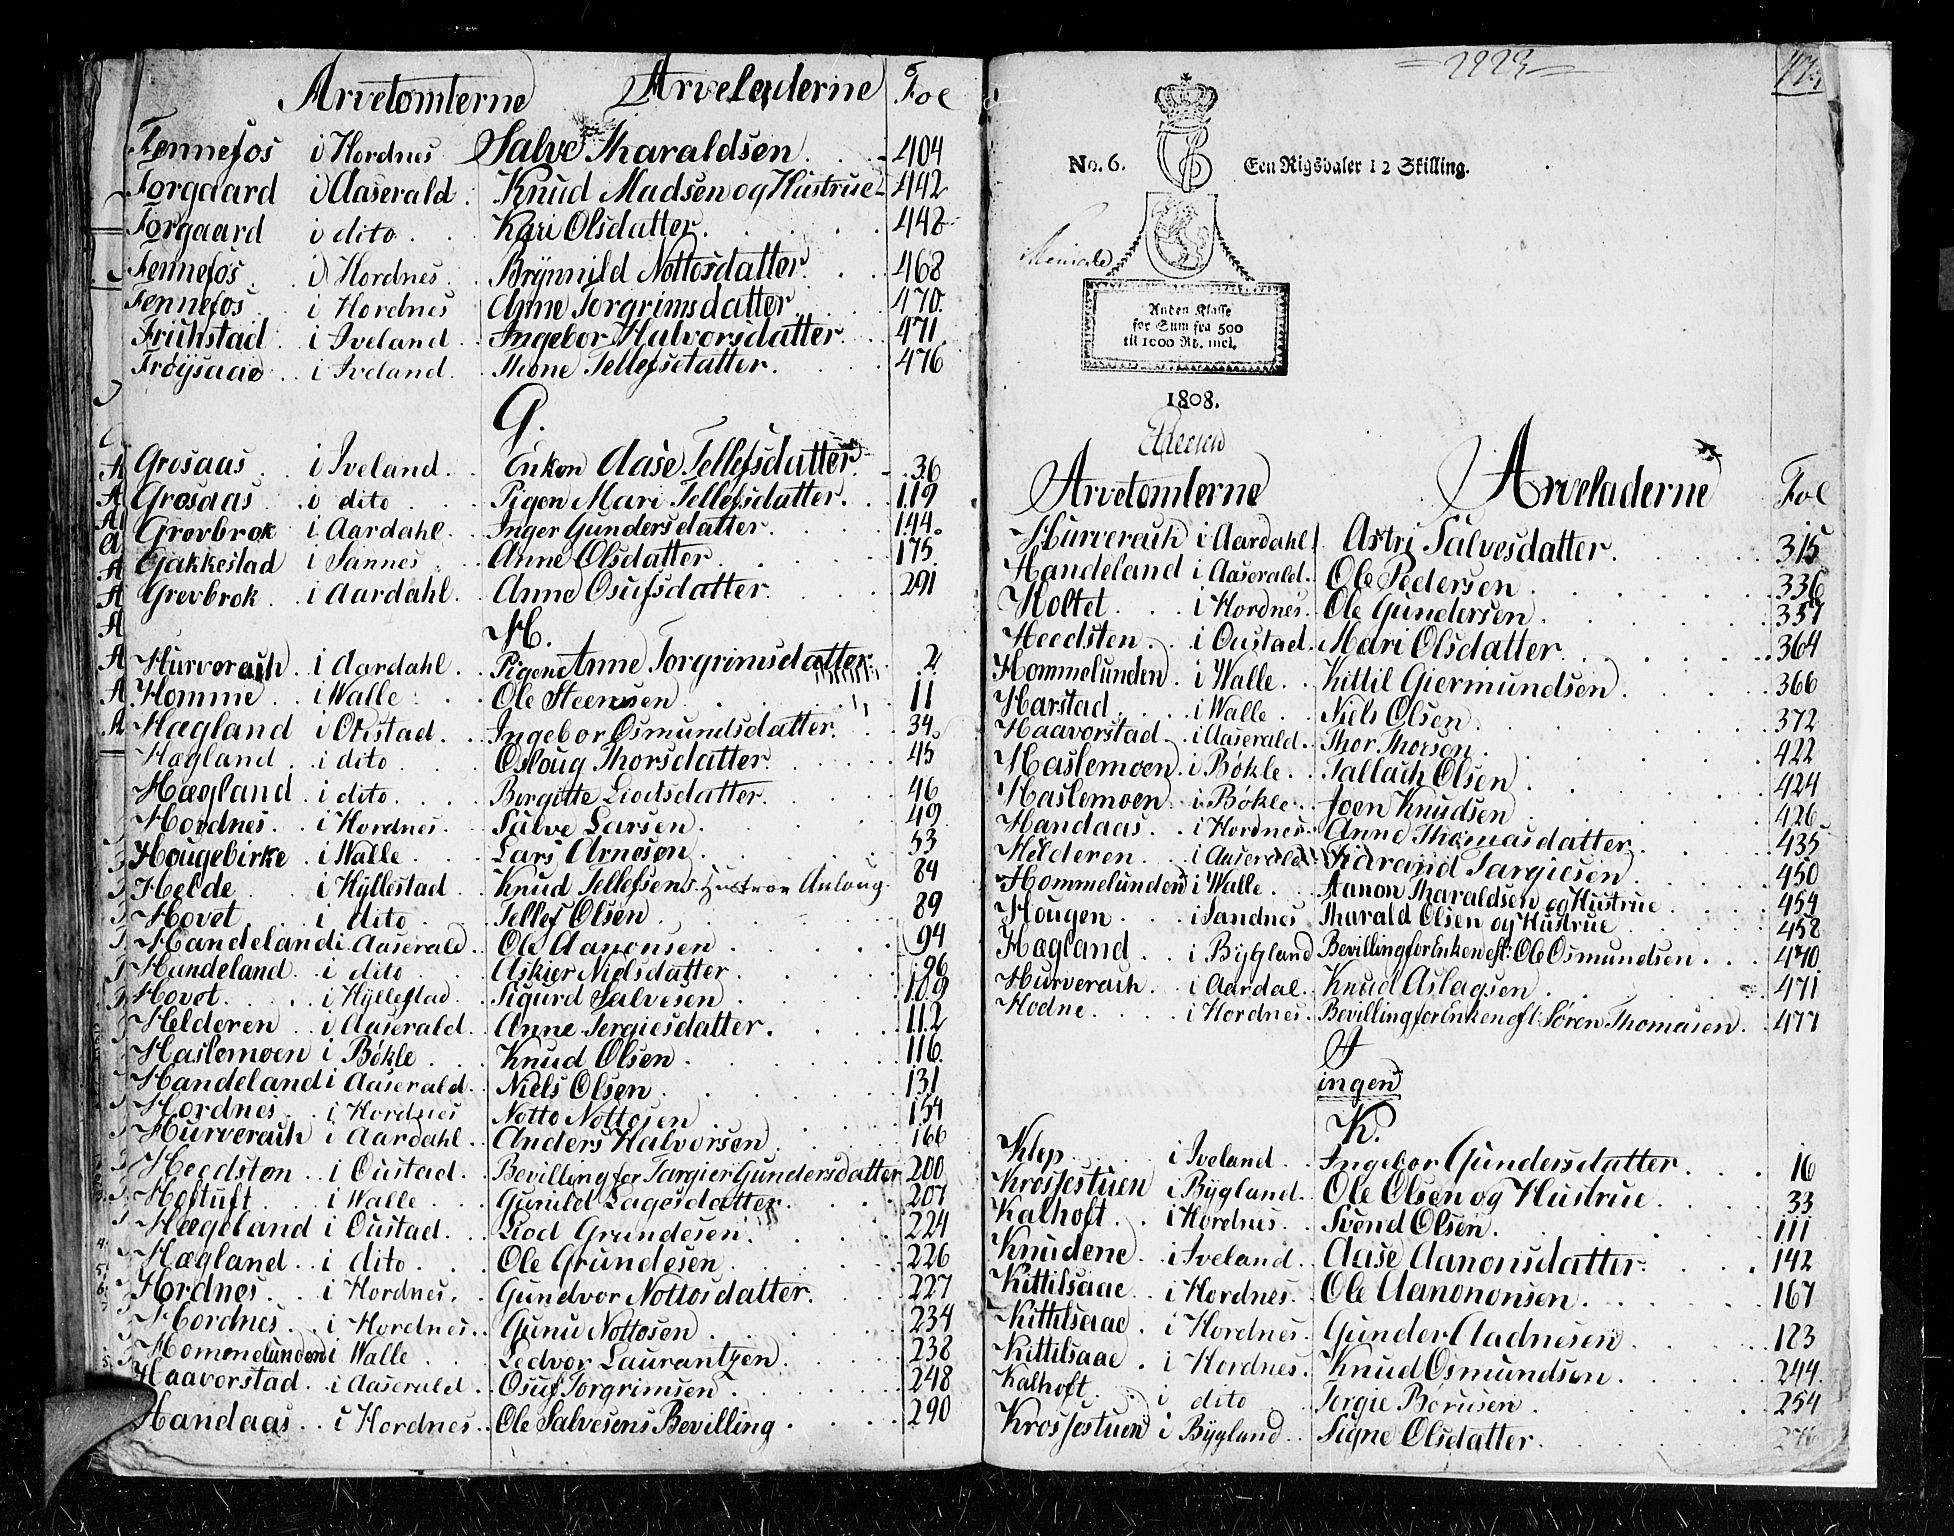 Arvetomterne Arveladerne Fol
Fennefos i Hordnes Salve Tharaldsen 404
Forgaard i Aaserald Knud Madsen og Hustrue 442
Forgaard i dito Kari Olsdatter 442
Fennefos i Hordnes Brÿnnild Nottosdatter 468
Fennefos i Hordnes Anne Torgrimsdatter 470
Friihstad i Iveland Ingebor Halvorsdatter 471
Frøysaae i Iveland Thone Tellefsdatter 476
G.
Grosaas i Iveland Enken Aase Tellefsdatter 36
Grosaas i dito Pigen Mari Tellefsdatter 119
Grovbrok i Aardahl Inger Gundersdatter 144
Gakkestad i Sannes Anne Olsdatter 175
Grevbrok i Aardahl Anne Osufsdatter 291
H.
Hurverath i Aardahl Pigene Anne Torgrimsdatter 2
Homme i Walle Ole Steensen 11
Hægland i Oustad Ingebor Osmundsdatter 34
Hægland i dito Osloug Thorsdatter 45
Hægland i dito Borgitte Liodsdatter 46
Hordnes i Hordnes Salve Larsen 49
Hougebirke i Walle Lars Arnesen 53
Helde i Hÿllestad Knud Tellefsens Hustroe Anloug 84
Hovet i dito Tellef Olsen 89
Handeland i Aaserald Ole Aanonsen 94
Handeland i dito Askier Nielsdatter 96
Hovet i Hÿllestad Sigurd Salvesen 109
Helderen i Aaserald Anne Tergiesdatter 112
Haslemoen i Bøkle Knud Olsen 116
Handeland i Aaserald Niels Olsen 131
Hordnes i Hordnes Notto Nottosen 154
Hurverath i Aardahl Anders Halvorsen 166
Heedsten i Oustad Bevilling for Targier Gundersdatter 200
Hoftuft i Walle Gunild Lagesdatter 207
Hægeland i Oustad Liod Grundesen 224
Hægland i dito Ole Grundesen 226
Hordnes i Hordnes Gundvor Nottosdatter 227
Hordnes i Hordnes Gunu Nottosen 234
Hommelunden i Walle Ledvor Laurantzen 238
Haavorstad i Aaserald Osuf Torgrimsen 248
Handaas i Hordnes Ole Salvesens Bevilling 290
No. 6. Een Rigsdaler 12 Skilling.
Anden Klasse
for Sum fra 500
til 1000 Rd. incl.
1808.
Arvetomterne Arveladerne Fol
Hurverath i Aardahl Astri Salvesdatter 315
Handeland i Aaserald Ole Pedersen 336
Holtet i Hordnes Ole Gundersen 357
Heedsten i Oustad Mari Olsdatter 364
Hommelunden i Walle Kittil Giermundsen 366
Harstad i Walle Niels Olsen 372
Haavorstad i Aaserald Thor Thorsen 422
Haslemoen i Bøkle Tallach Olsen 424
Haslemoen i Bøkle Joen Knudsen 426
Handaas i Hordnes Anne Thomasdatter 435
Helderen i Aaserald Targiesen 450
Hommelunden i Walle Aanon Tharaldsen og Hustrue 454
Hougen i Sandnes Tharald Olsen og Hustrue 458
Hægland i Bÿgland Bevilling for Enken eft: Ole Osmundsen 470
Hurverath i Aardal Knud Aslagsen 471
Hodne i Hordnes Bevilling for Enken eft Søren Thomasen 477
I
ingen
K.
Klep i Iveland Ingebor Gundersdatter 16
Krosjestuen i Bÿgland Ole Olsen og Hustrue 33
Kalhoft i Hordnes Svend Olsen 111
Knudene i Iveland Aase Aanonsdatter 142
Kittilsaae i Hordnes Ole Aanononsen 167
Kittilsaae i Hordnes Gunder Aadnesen 183
Kittilsaae i Hordnes Knud Osmundsen 244
Kalhoft i dito Torgie Børusen 254
Krosjestuen i Bÿgland Signe Olsdatter